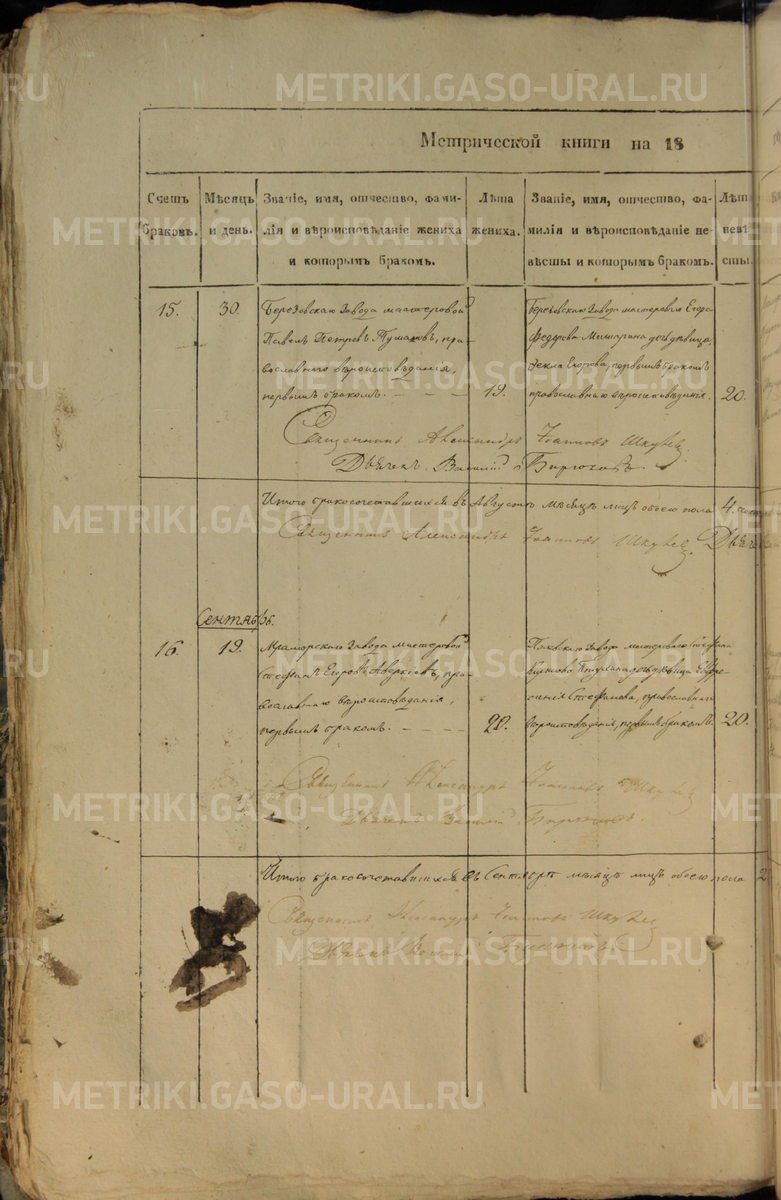 METRIKI.GASO-URAL.RU
Метрической книги на 18
Счетъ браковъ.
Мѣсяцъ и день.
Званіе, имя, отчество, фами-
лія и вѣроисповѣданіе жениха
и которымъ бракомъ.
Лѣта жениха.
Званіе, имя, отчество, фа-
милія и вѣроисповѣданіе не-
вѣсты и которымъ бракомъ.
Лѣт
невѣ
сты.
15.
30.
Березовскаго Завода мастеровой
Павелъ Петровъ Тумаковъ, пра-
вославнаго вѣроисповѣданія,
первымъ бракомъ.
19.
Березовскаго Завода мастероваго Егора
Федорова Мишарина дочь дѣвица,
Фекла Егорова, первымъ бракомъ
православнаго вѣроисповѣданія.
20.
Священникъ Александръ Іоанновъ
Дьячекъ Василій Бирюковъ.
Итого бракосочетавшихся въ Августѣ мѣсяцѣ лицъ обоего пола 4.
Священникъ Александръ Іоанновъ
Сентябрь.
16.
19.
Мраморскаго Завода мастеровой
Стефанъ Егоровъ Аверкіевъ, пра-
вославнаго вѣроисповѣданія,
первымъ бракомъ.
20.
Завода мастероваго Стефана
дочь дѣвица Евфро-
синія Стефанова, православнаго
вѣроисповѣданія, первымъ бракомъ.
20.
Священникъ Александръ Іоанновъ
Дьячекъ Василій Бирюковъ.
Итого бракосочетавшихся въ Сентябрѣ мѣсяцѣ лицъ обоего пола 2
Священникъ Александръ Іоанновъ
Дьячекъ Василій Бирюковъ